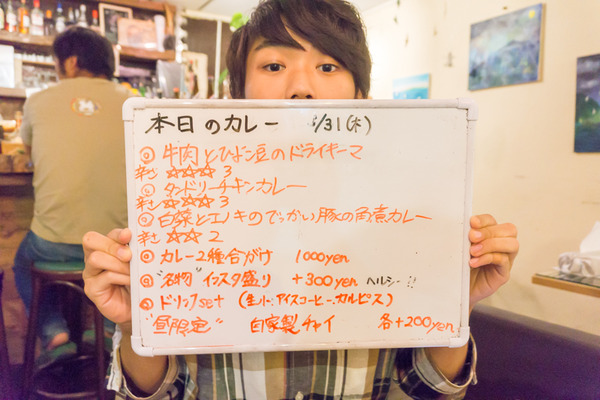 本日のカレー 5/31(木)
◎牛肉とひよこ豆のドライキーマ
辛さ ☆☆☆ 3
◎タンドリーチキンカレー
辛さ ☆☆☆ 3
◎白菜とエノキのでっかい豚の角煮カレー
辛さ ☆☆ 2
◎カレー2種合がけ 1000yen
◎"名物"インスタ盛り +300yen ヘルシー!!
◎ドリンクset (生ハト:アイスコーヒー、カルピス)
"昼限定" 自家製チャイ 各+200yen